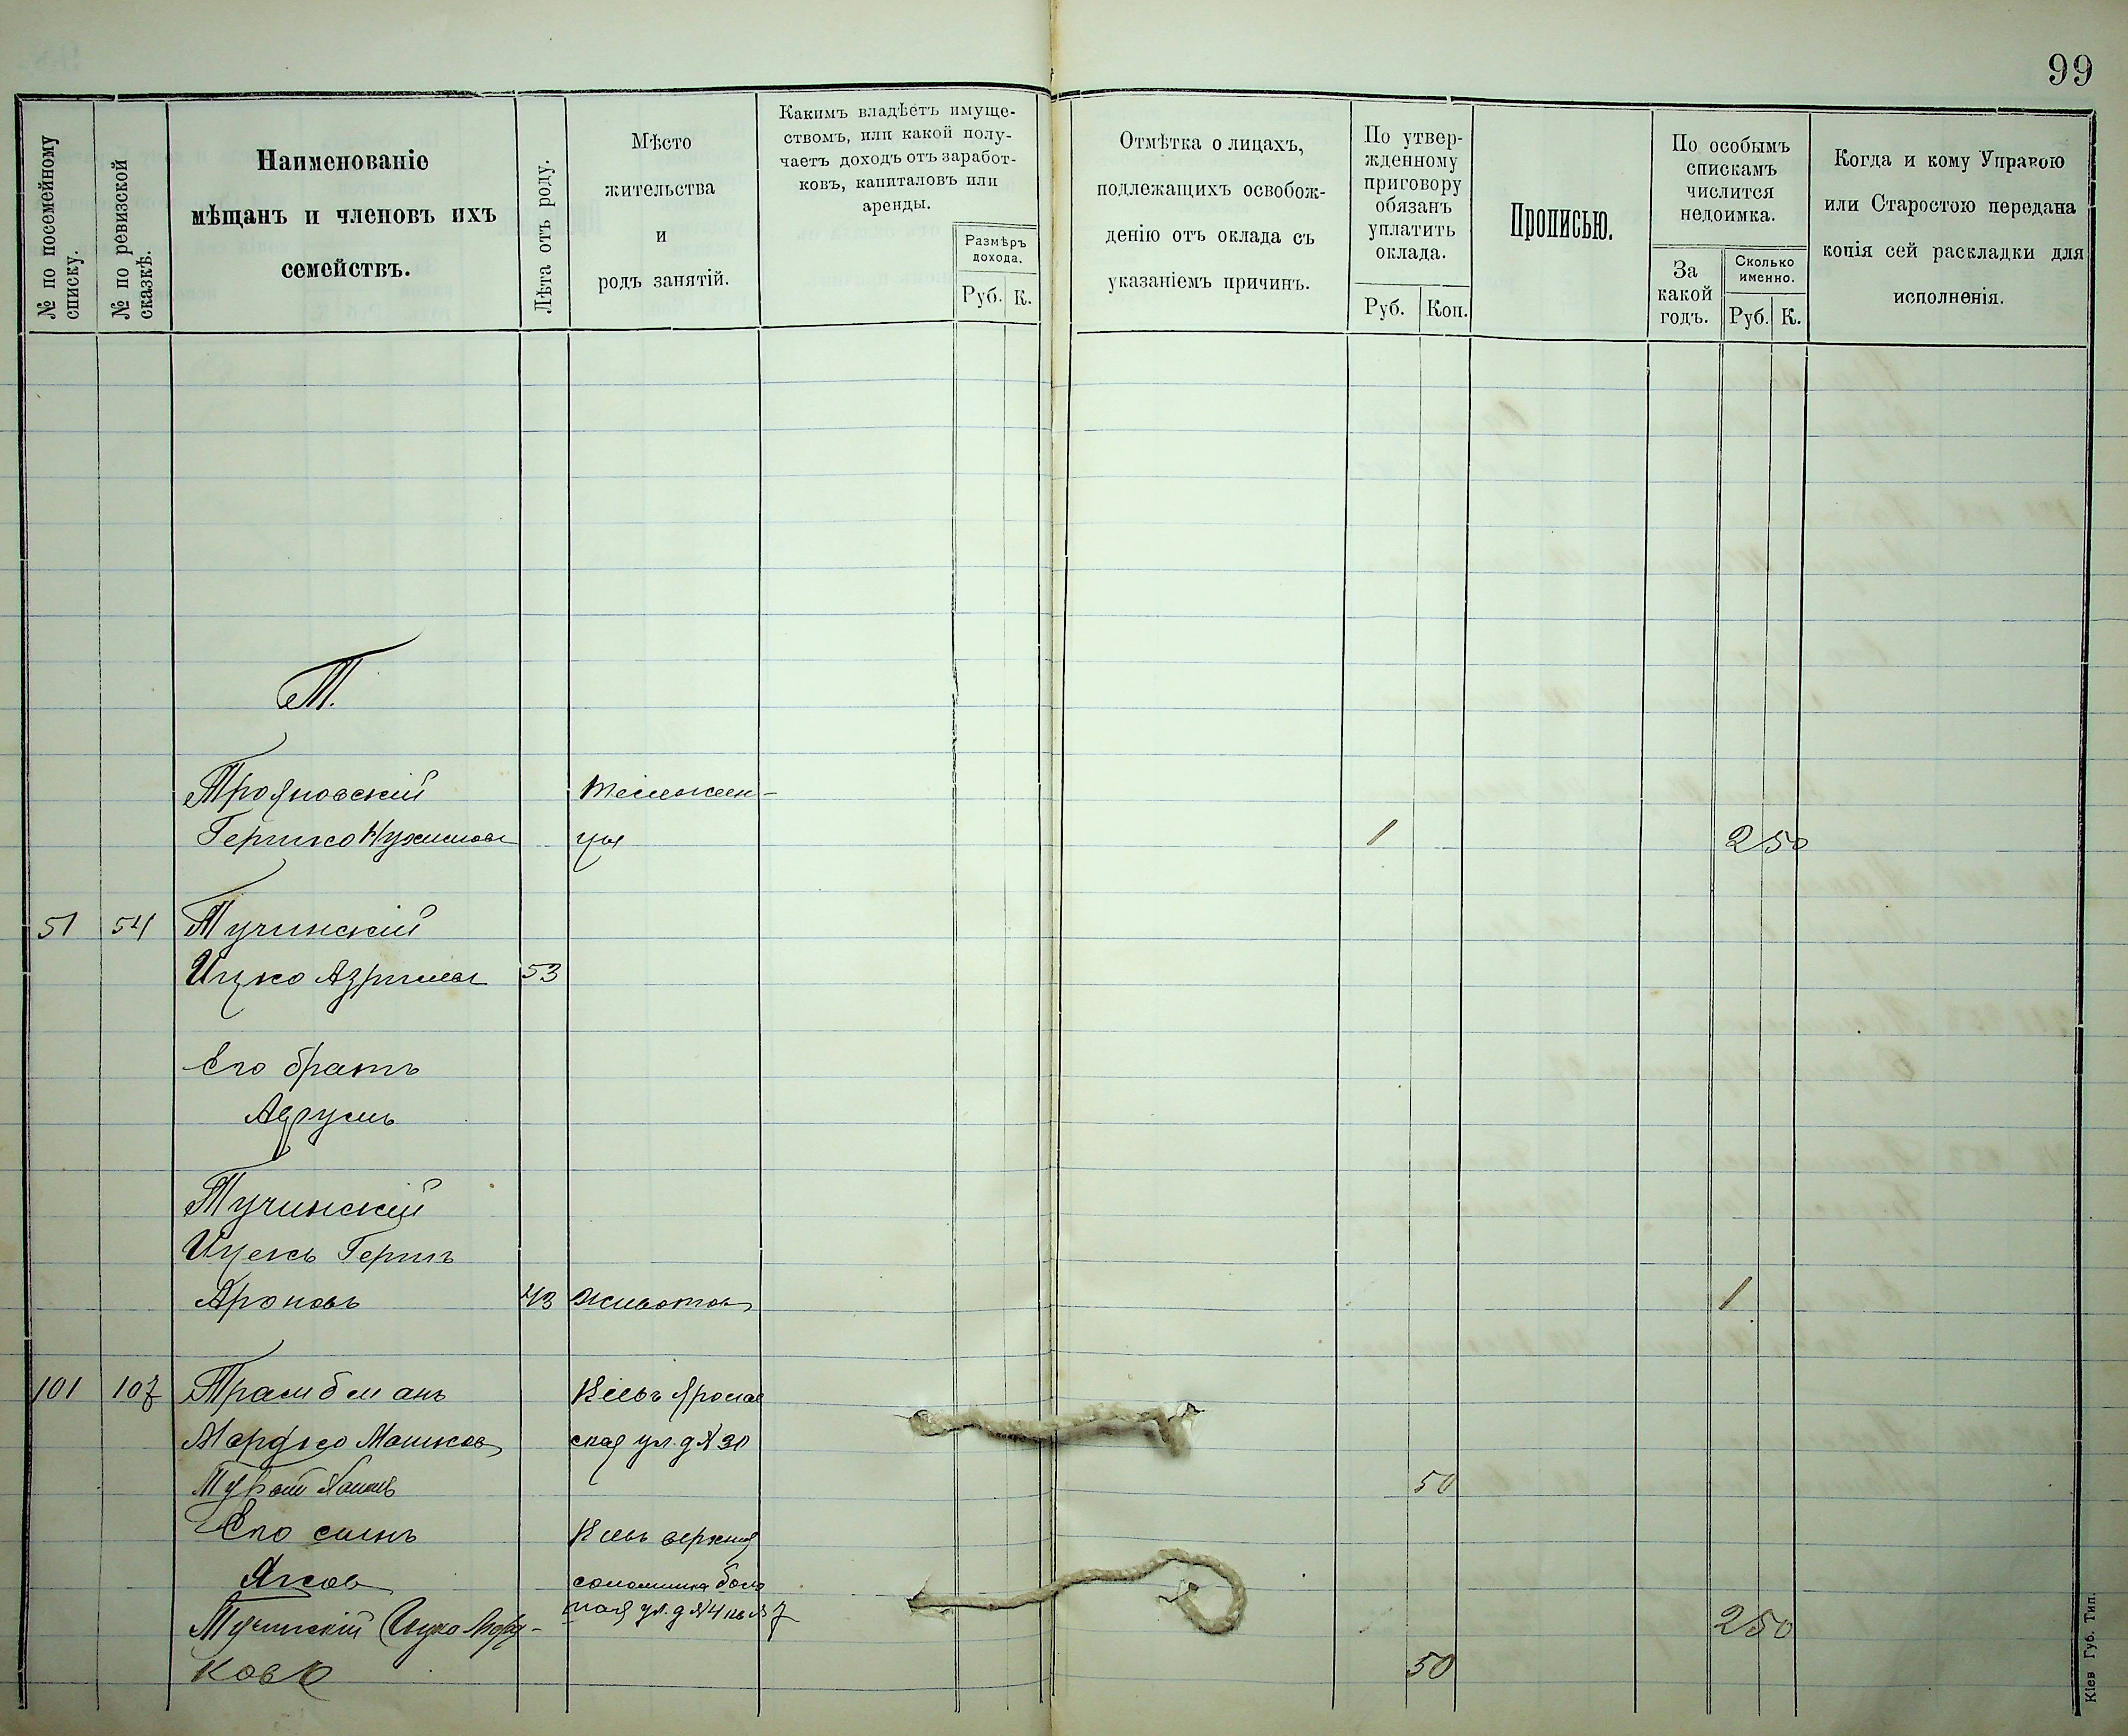 99
№ по посемейному списку.
№ по ревизской сказкѣ.
Наименованіе
мѣщанъ и членовъ ихъ
семействъ.
Лѣта отъ роду.
Мѣсто
жительства
и
родъ занятій.
Какимъ владѣетъ имуще-
ствомъ, или какой полу-
чаетъ доходъ отъ заработ-
ковъ, капиталовъ или
аренды.
Размѣръ
дохода.
Руб. К.
Отмѣтка о лицахъ,
подлежащихъ освобож-
денію отъ оклада съ
указаніемъ причинъ.
По утвер-
жденному
приговору
обязанъ
уплатить
оклада.
Руб. Коп.
Прописью.
По особымъ
спискамъ
числится
недоимка.
За
какой
годъ.
Сколько
именно.
Руб. К.
Когда и кому Управою
или Старостою передана
копія сей раскладки для
исполненія.
Т.
Трояновскій
Гершко Нухимовъ цы 1 2 50
51 54 Тучинскій
Ицко 53
Его братъ
Тучинскій
Ицекъ Гершъ
Ароновъ 43 Животов
101 107 Кіевъ Яросла
Мордко Мошков ская ул. д № 30
50
Его сынъ Кіевъ верхняя
Яков соломинка
ная ул. д № 4 кв № 7
Тучинскій Ицко Морд- 2 50
ковъ 50
Кіев Губ. Тип.